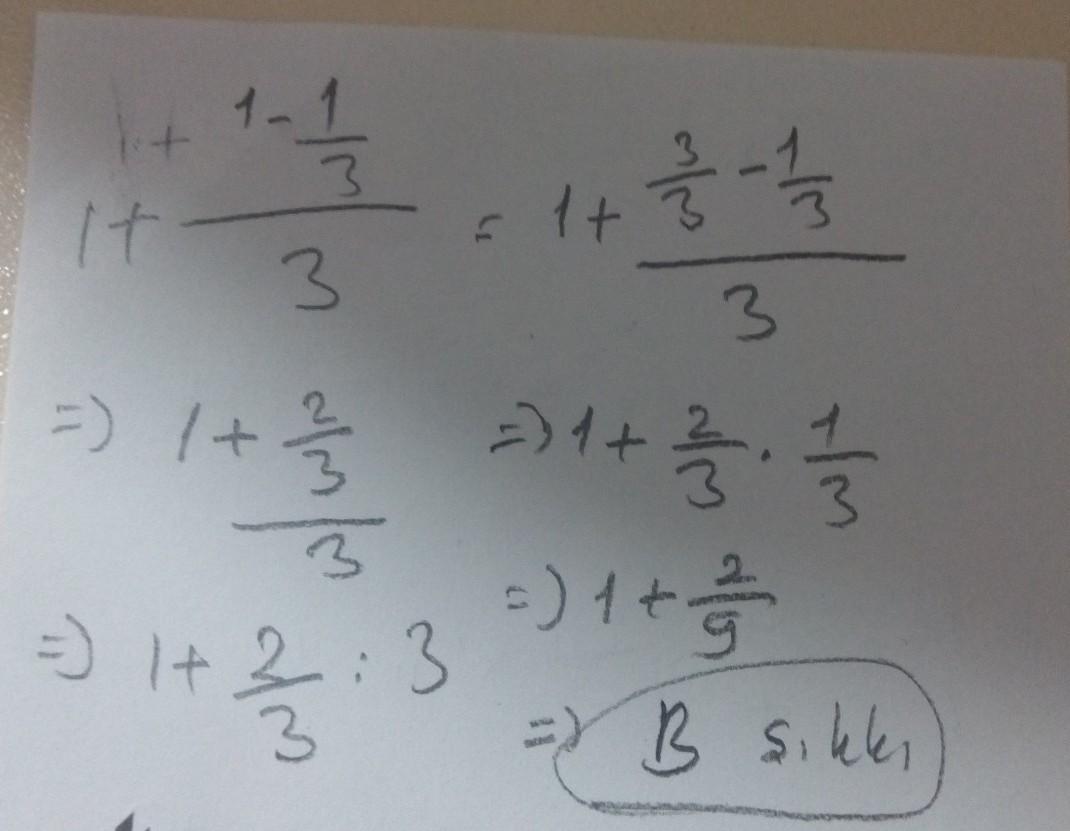 1 + (1 - 1/3)/3 = 1 + (3/3 - 1/3)/3
=> 1 + (2/3)/3
=> 1 + 2/3 : 3
=> 1 + 2/3 . 1/3
=> 1 + 2/9
=> B şıkkı